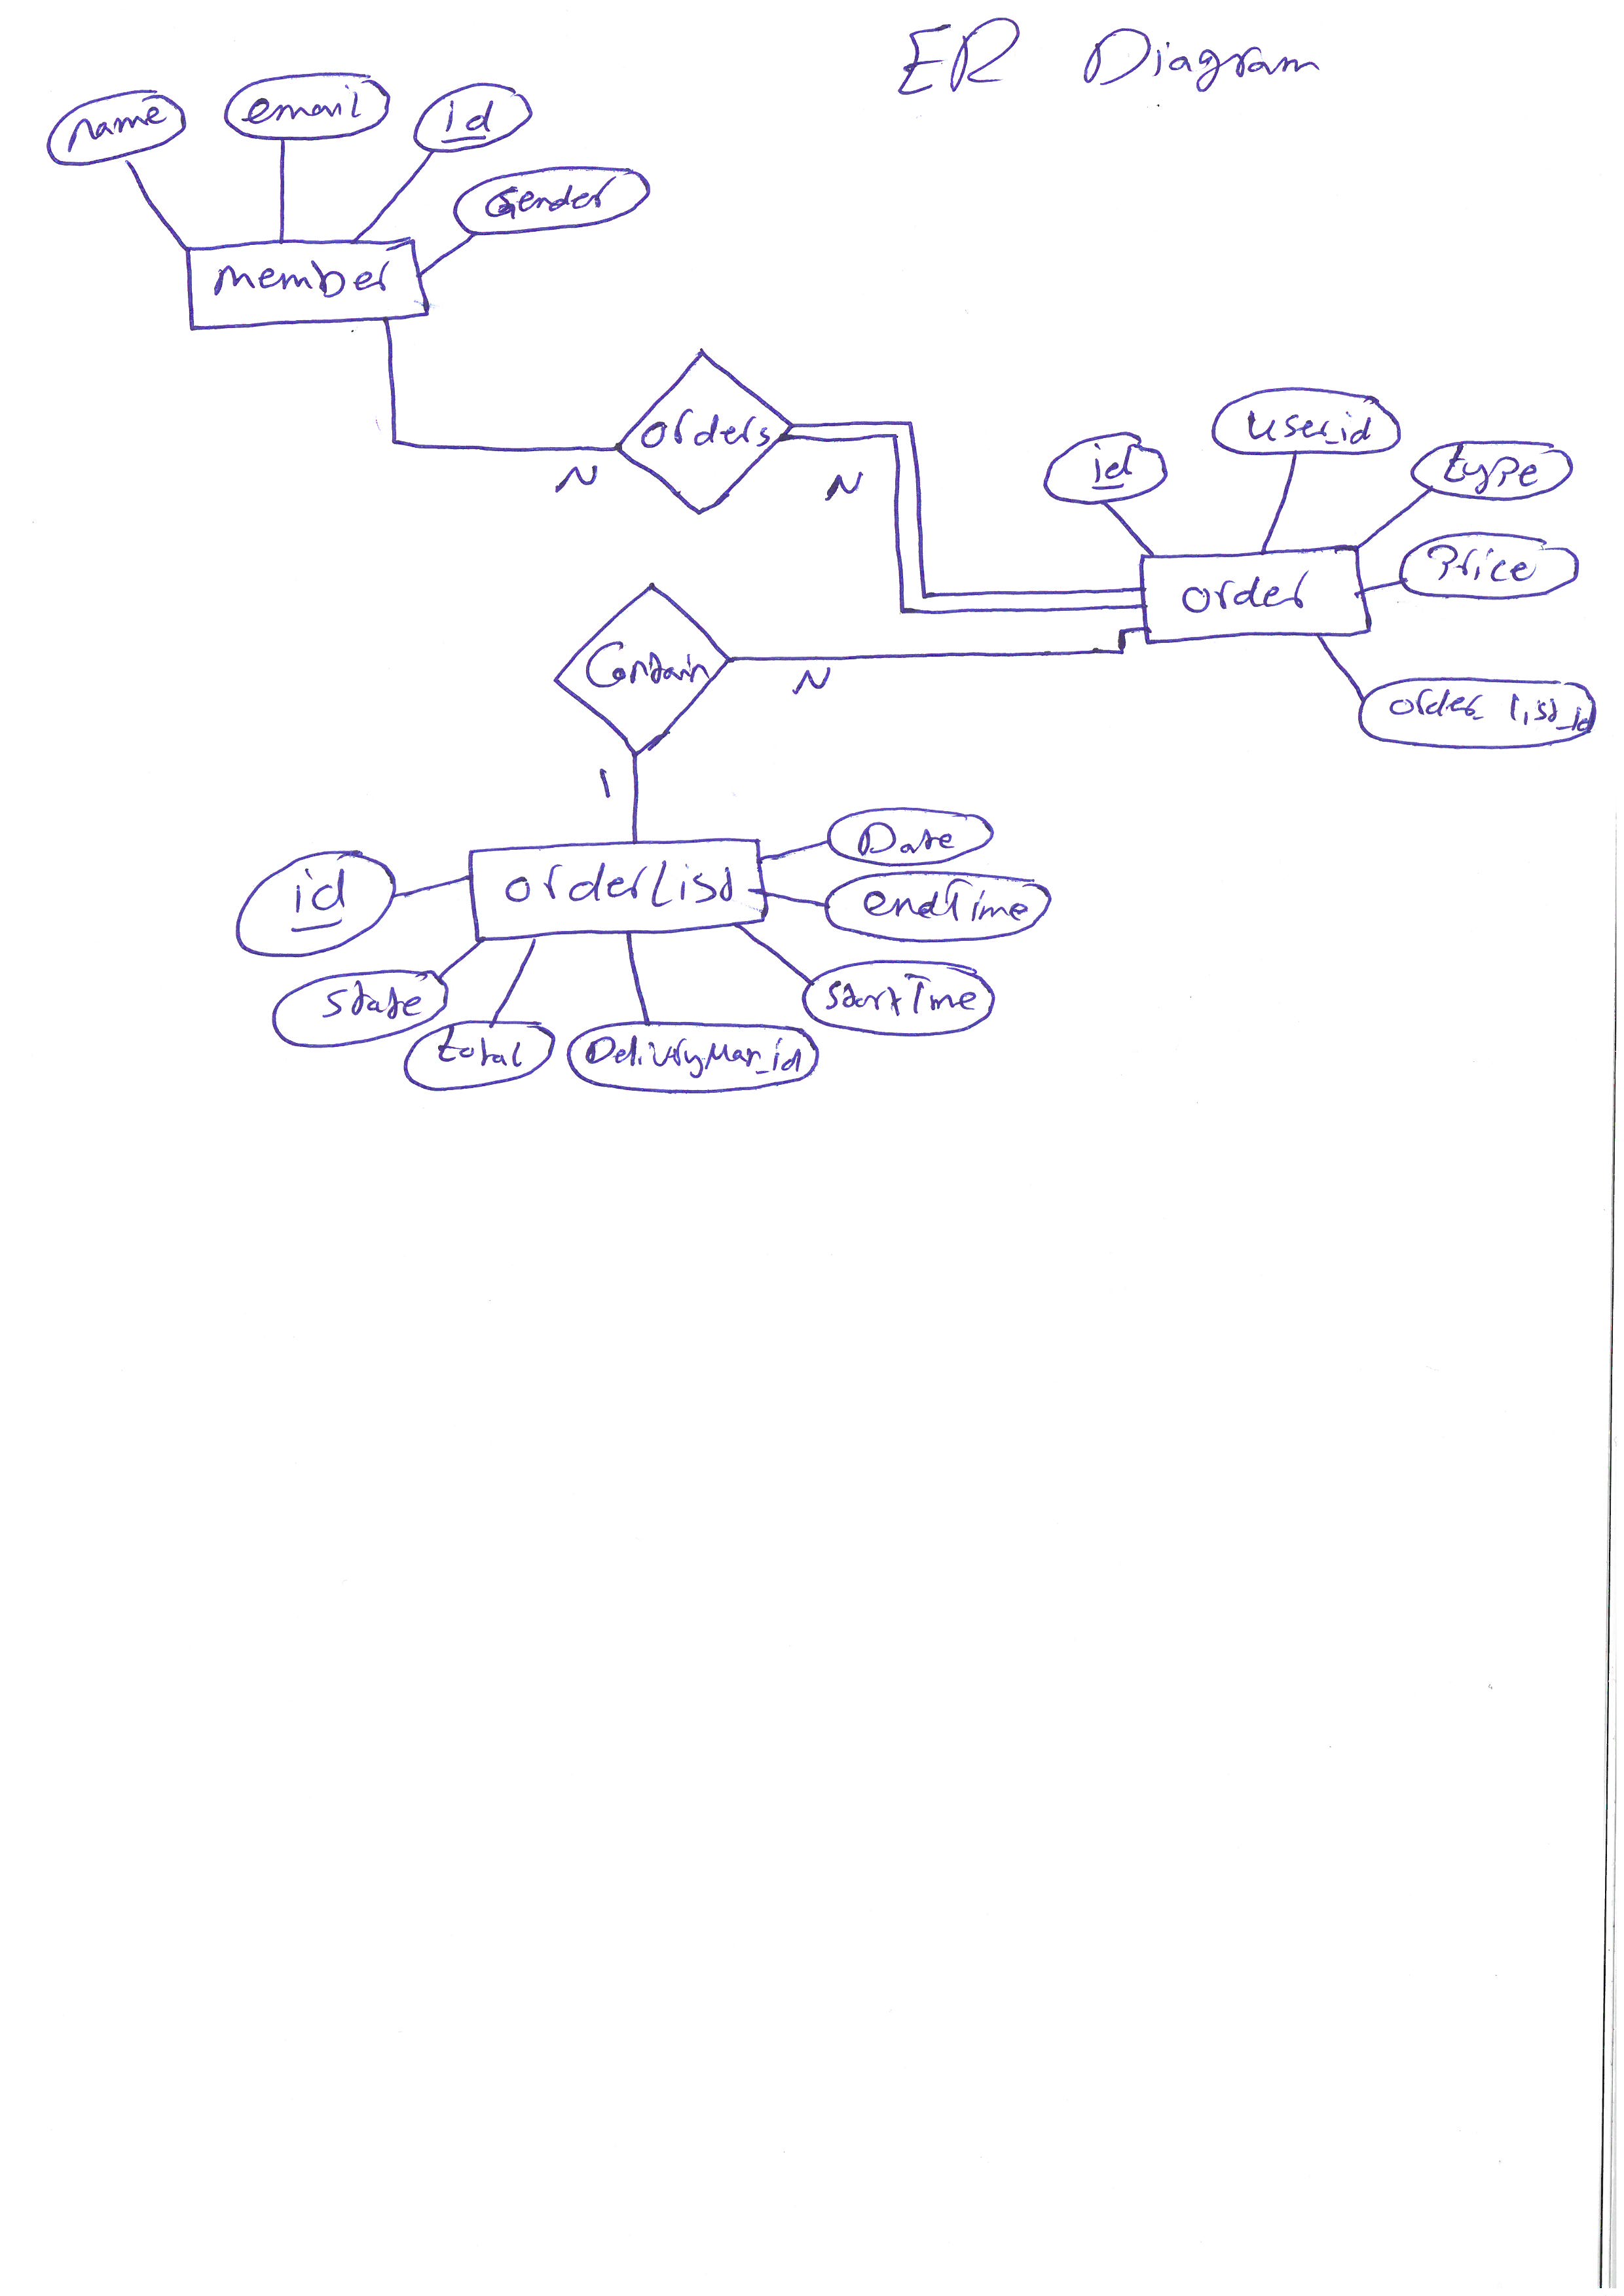 ER Diagram
name
email
id
Gender
member
orders
N
N
id
user_id
type
Price
order
order_list_id
Contain
N
1
orderList
id
Date
endTime
state
total
DeliveryMan_id
startTime